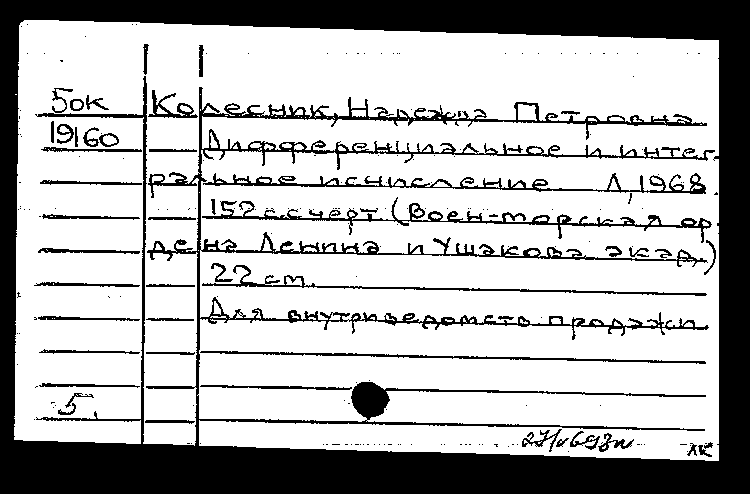 5ок Колесник, Надежда Петровна
19160 Дифференциальное и интег-
ральное исчисление. Л, 1968.
152 с. с черт (Воен-морская ор-
дена Ленина и Ушакова акад)
22 см.
Для внутриведомств продажи.
5.